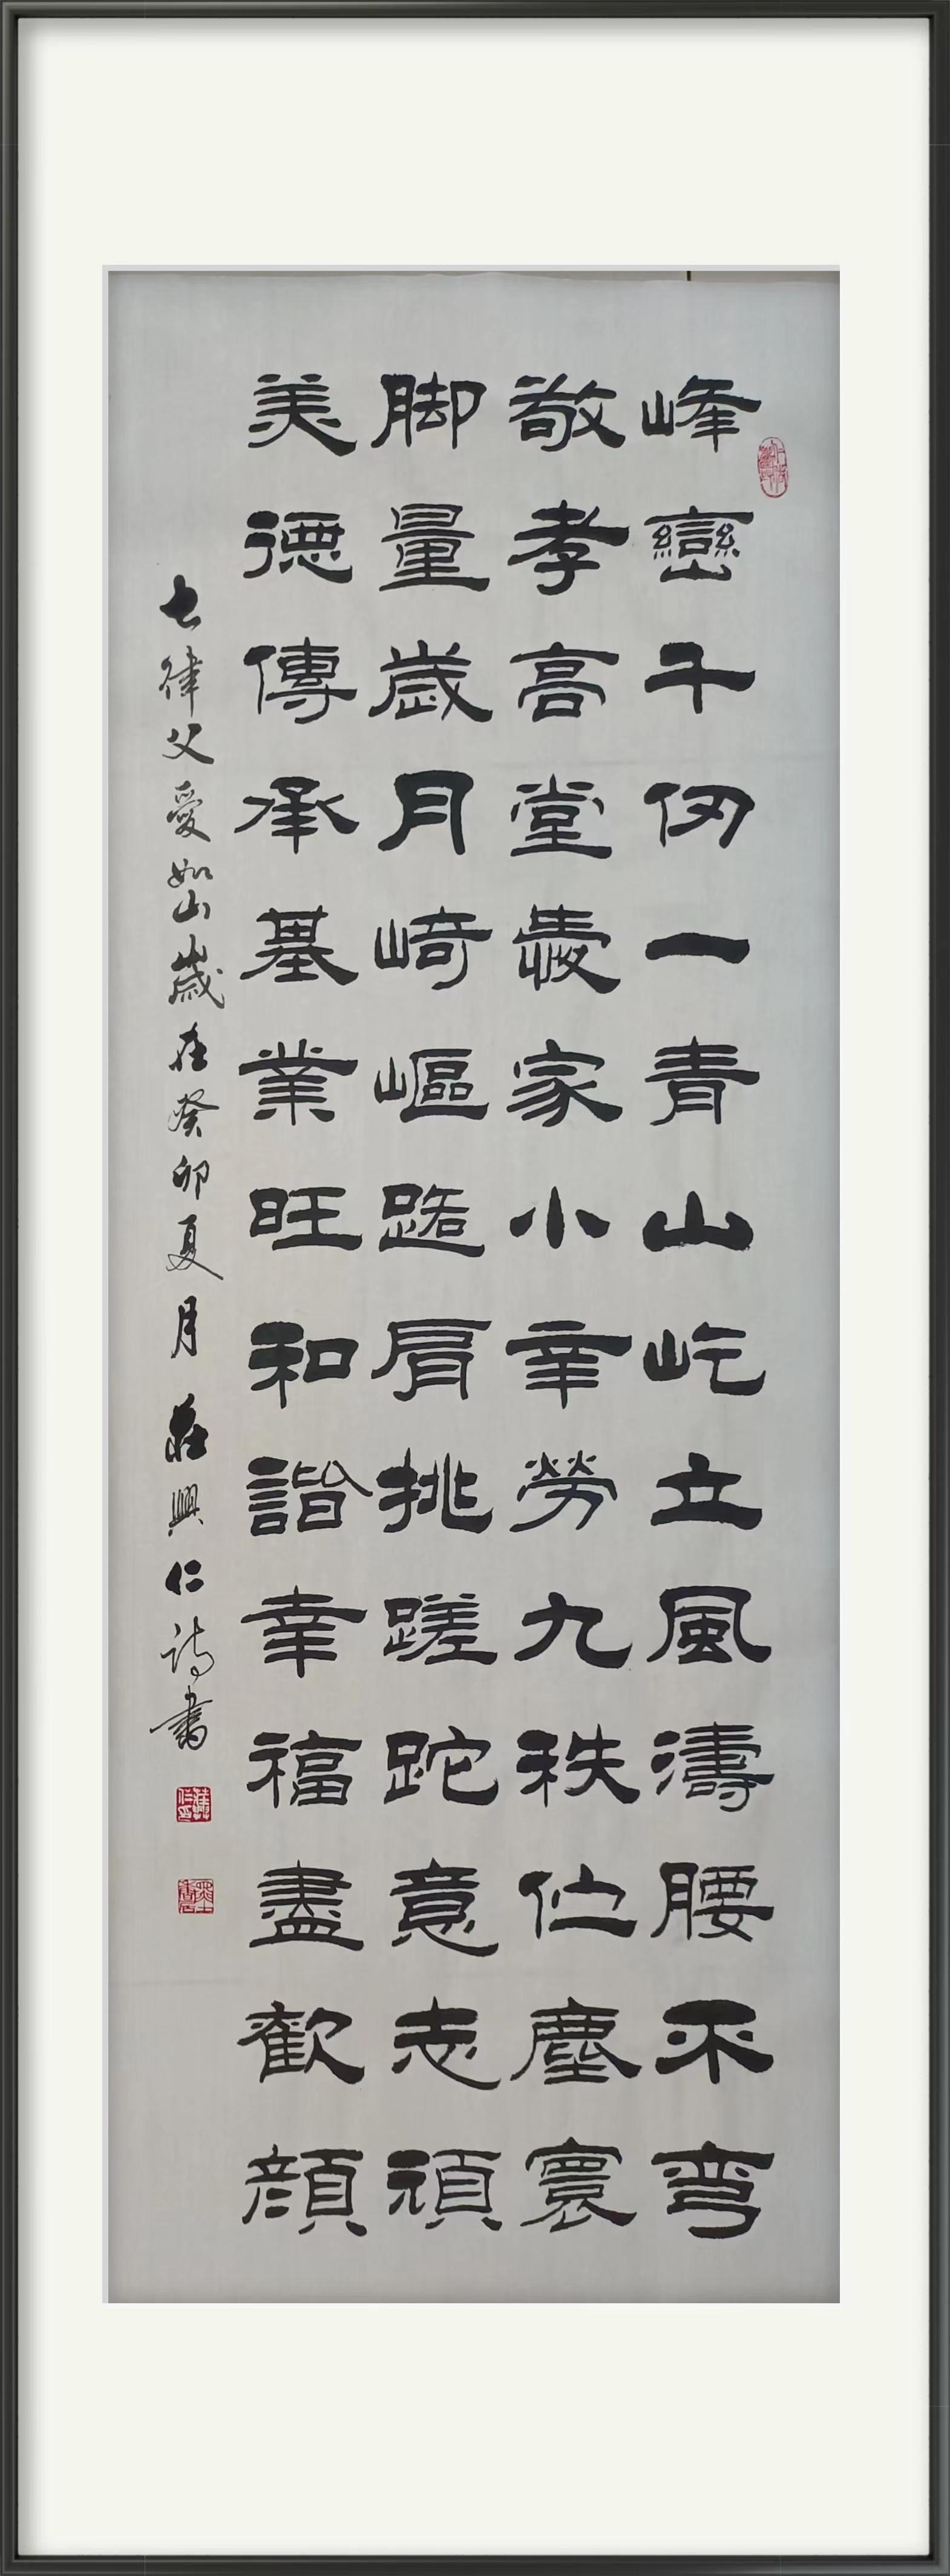 峰巒千仞一青山屹立風濤腰不弯
敬孝高堂愛家小辛勞九秩伫塵寰
脚量歲月崎嶇路肩挑蹉跎意志頑
美德傳承基業旺和諧幸福盡歡顔
七律父愛如山歲在癸卯夏月莊興仁詩書